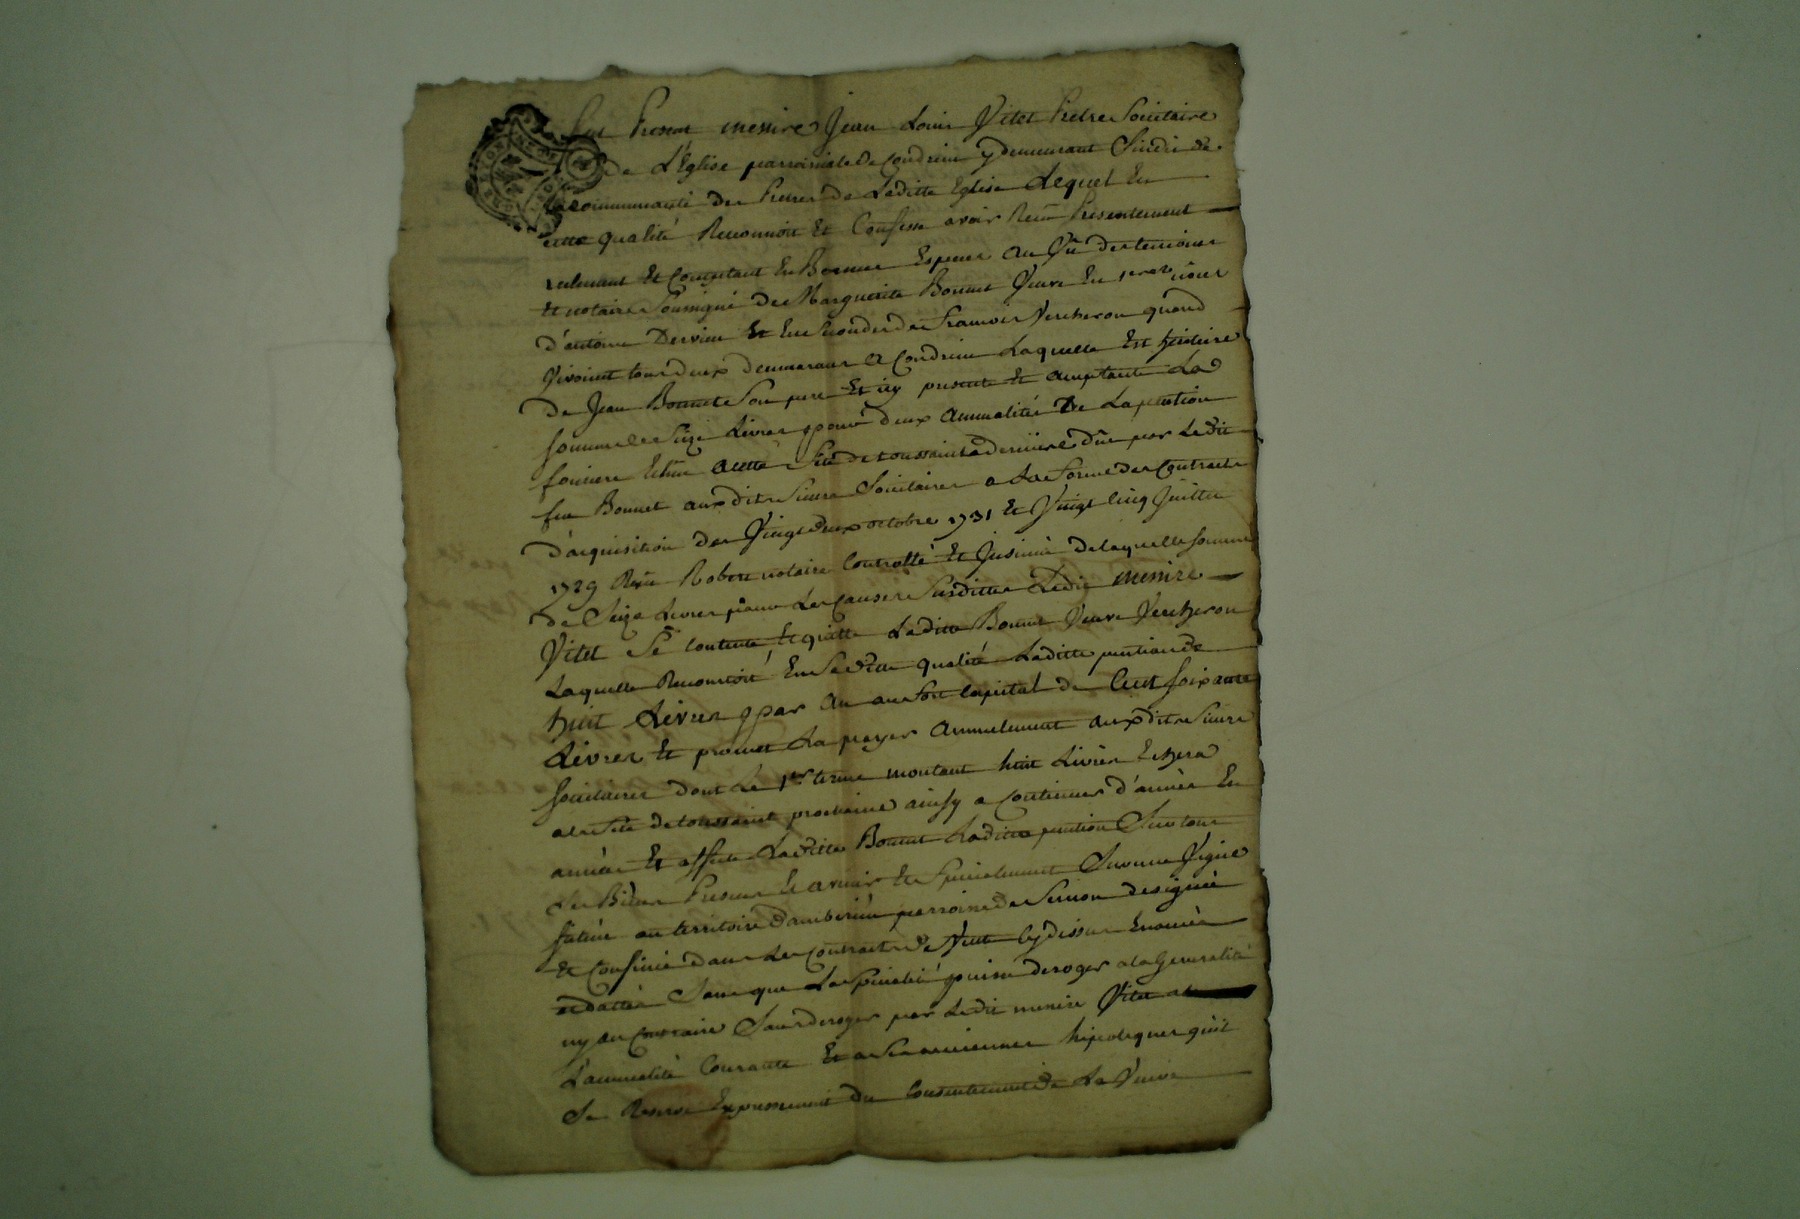 Fut Present messire Jean Louis Vitet Pretre Societaire
de L'Eglise parroissiale de Condrieu y demeurant Sindic de
la communauté des Pretres de Laditte Eglise Lequel En
cette qualité Reconnoit Et Confesse avoir Reçu Presentement
reelment Et Comptant En Bonnes Especes Au Vû des temoins
Et notaire Soussigné de Marguerite Bonnet Veuve En 1eres nôces
d'antoine Dervieu Et En Secondes de Francois Vercheron quand
Vivoient tous deux demeurans a Condrieu Laquelle Est heritiere
de Jean Bonnet Son pere Et icy presente Et acceptante La
somme de Seize Livres pour deux Annualités De La pention
fonciere Echue a cette fete de toussaints derniere dûe par Ledit
feu Bonnet auxdits Sieurs Societaires a La forme des Contracts
d'acquisition des Vingt deux octobre 1731 Et Vingt Cinq Juillet
1739 Reçu Robert notaire Controllé Et Insinué de laquelle somme
de Seize Livres pour Les Causes Susdittes Ledit messire
Vitet Se Contente Et quitte Laditte Bonnet Veuve Vercheron
Laquelle Reconnoit En Saditte qualité Laditte pention de
huit Livres par An au Sort Capital de Cent Soixante
Livres Et promet La payer Annuelement auxdits Sieurs
Societaires dont Le 1er terme montant huit Livres Echera
a la fete de toussaint prochaine ainsy a Continuer d'année En
année Et affecte Laditte Bonnet Laditte pention Sur tous
Ses Biens Presens Et avenir Et Specialement Sur une Vigne
Située au territoire parroisse de Semon designée
Et Confinée dans Les Contracts de Vente Cy dessus Enoncés
et dattés Sans que La Specialité puisse deroger a la Generalité
ny au Contraire Sans deroger par Ledit messire Vitet a
L'annualité Courante Et a Ses anciennes hipoteques qu'il
Se Reserve Expressement du Consentement de La Veuve